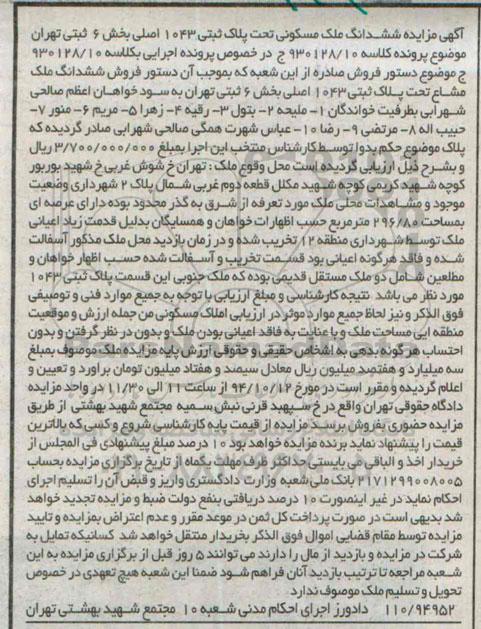 آگهی مزایده ششدانگ ملک مسکونی تحت پلاک ثبتی ۱۰۴۳ اصلی بخش ۶ ثبتی تهران
موضوع پرونده کلاسه ۹۳۰۱۲۸/۱۰ ج در خصوص پرونده اجرایی بکلاسه ۹۳۰۱۲۸/۱۰
ج موضوع دستور فروش صادره از این شعبه که بموجب آن دستور فروش ششدانگ ملک
مشاع تحت پلاک ثبتی ۱۰۴۳ اصلی بخش ۶ ثبتی تهران به سود خواهان اعظم صالحی
شهرابی بطرفیت خواندگان ۱- ملیحه ۲- بتول ۳- رقیه ۴- زهرا ۵- مریم ۶- منور ۷-
حبیب اله ۸- مرتضی ۹- رضا ۱۰- عباس شهرت همگی صالحی شهرابی صادر گردیده که
پلاک موضوع حکم بدوا توسط کارشناس منتخب این اجرا بمبلغ ۳/۷۰۰/۰۰۰/۰۰۰ ریال
و بشرح ذیل ارزیابی گردیده است محل وقوع ملک : تهران خ شوش غربی خ شهید پوررپور
کوچه شهید کریمی کوچه شهید مکلل قطعه دوم غربی شمال پلاک ۲ شهرداری وضعیت
موجود و مشاهدات محلی ملک مورد تعرفه از شرق به گذر محدود بوده دارای عرصه ای
بمساحت ۲۹۶/۸۰ متر مربع حسب اظهارات خواهان و همسایگان بدلیل قدمت زیاد اعیانی
ملک توسط شهرداری منطقه ۱۲ تخریب شده و در زمان بازدید محل ملک مذکور آسفالت
شده و فاقد هرگونه اعیانی بود قسمت تخریب و آسفالت شده حسب اظهار خواهان و
مطلعین شامل دو ملک مستقل قدیمی بوده که ملک جنوبی این قسمت پلاک ثبتی ۱۰۴۳
مورد نظر می باشد نتیجه کارشناسی و مبلغ ارزیابی با توجه به جمیع موارد فنی و توصیفی
فوق الذکر و نیز لحاظ جمیع موارد موثر در ارزیابی املاک مسکونی من جمله ارزش و موقعیت
منطقه ایی مساحت ملک و با عنایت به فاقد اعیانی بودن ملک و بدون در نظر گرفتن و بدون
احتساب هرگونه بدهی به اشخاص حقیقی و حقوقی ارزش پایه مزایده ملک موصوف بمبلغ
سه میلیارد و هفتصد میلیون ریال معادل سیصد و هفتاد میلیون تومان براورد و تعیین و
اعلام گردیده و مقرر است در مورخ ۹۴/۱۰/۱۲ از ساعت ۱۱ الی ۱۱/۳۰ در واحد مزایده
دادگاه حقوقی تهران واقع در خ سپهبد قرنی نبش سمیه مجتمع شهید بهشتی از طریق
مزایده حضوری بفروش برسد مزایده از قیمت پایه کارشناسی شروع و کسی که بالاترین
قیمت را پیشنهاد نماید برنده مزایده خواهد بود ۱۰ درصد مبلغ پیشنهادی فی المجلس از
خریدار اخذ و الباقی می بایستی حداکثر ظرف مهلت یکماه از تاریخ برگزاری مزایده بحساب
۲۱۷۱۲۹۹۰۰۸۰۰۵ بانک ملی شعبه وزارت دادگستری واریز و قبض آن را تسلیم اجرای
احکام نماید در غیر اینصورت ۱۰ درصد دریافتی بنفع دولت ضبط و مزایده تجدید خواهد
شد بدیهی است در صورت پرداخت کل ثمن در موعد مقرر و عدم اعتراض بمزایده و تایید
مزایده توسط مقام قضایی اموال فوق الذکر بخریدار منتقل خواهد شد کسانیکه تمایل به
شرکت در مزایده و بازدید از مال را دارند می توانند ۵ روز قبل از برگزاری مزایده به این
شعبه مراجعه تا ترتیب بازدید آنان فراهم شود ضمنا این شعبه هیچ تعهدی در خصوص
تحویل و تسلیم ملک موصوف ندارد
۱۱۰/۹۴۹۵۲ دادورز اجرای احکام مدنی شعبه ۱۰ مجتمع شهید بهشتی تهران